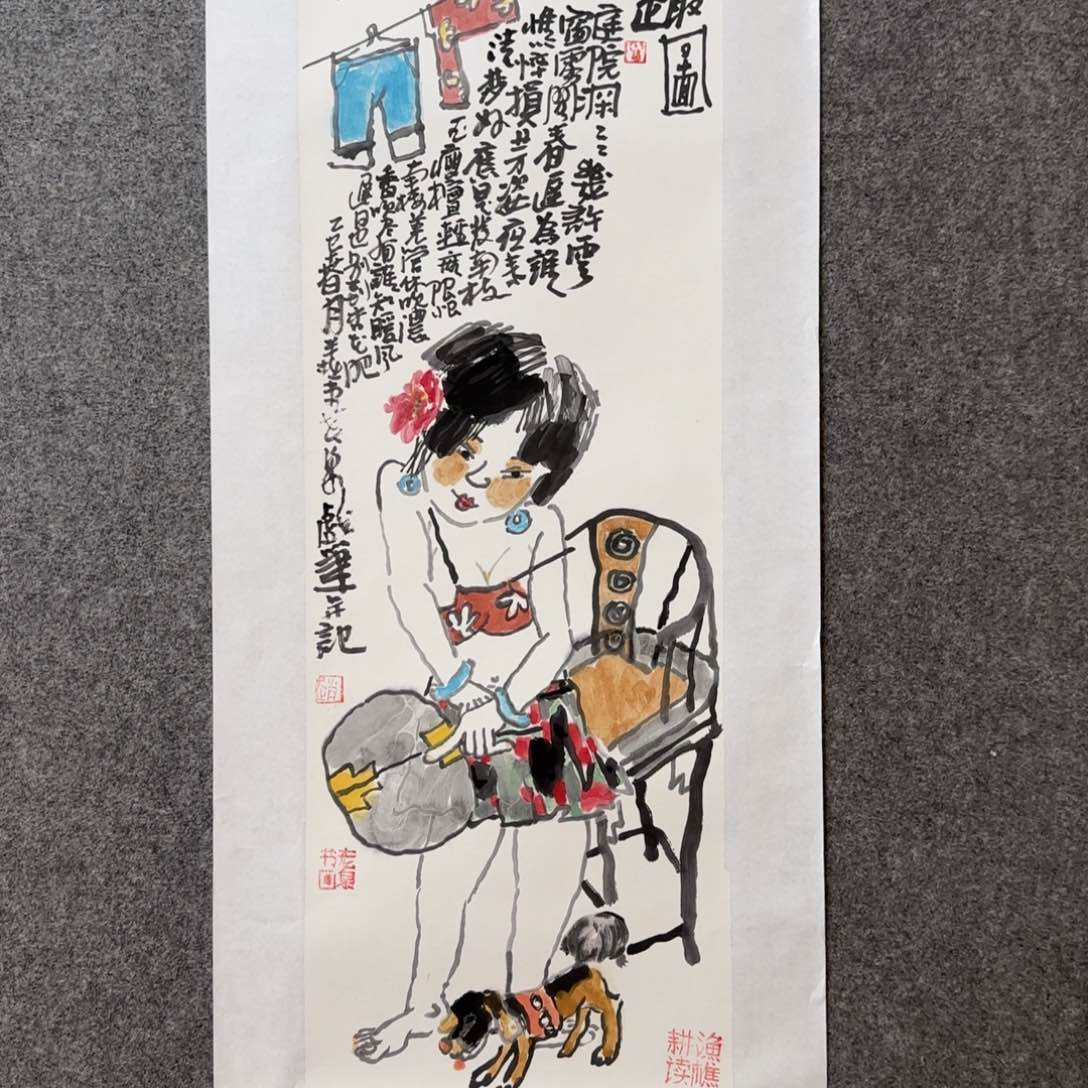 圖
庭院深〻幾許雲
窗雾閣春遲為誰
憔悴損芳姿夜来
清夢好應是發南枝
玉瘦檀輕無限恨
南樓羌管休吹濃
香吹尽有誰知暖风
遲日也别到杏花肥
乙巳春月
戲筆并記
老泉书画
渔樵耕读